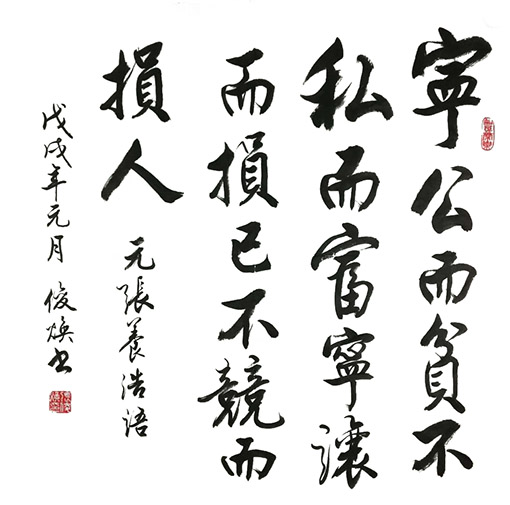 寧公而貧不
私而富寧讓
而損己不競而
損人
元張養浩語
戊戌年元月 俊煥书